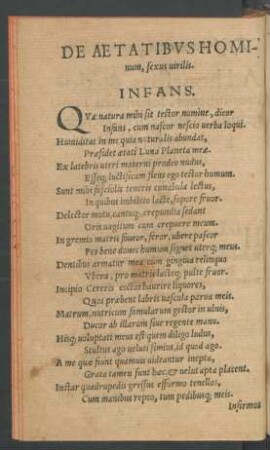 DE AETATIBVS HOMI-
num, sexus virilis.
INFANS.
QVae natura mihi sit testor nomine, dicor
Infans, cum nascor nescio verba loqui.
Humiditas in me quia naturalis abundat,
Praesidet aetati Luna Planeta meae.
Ex latebris uteri materni prodeo nudus,
Esseq; luctificam flens ego testor humum.
Sunt mihi fasciolis teneris cunabula lectus,
In quibus imbibito lacte, sopore fruor.
Delector motu, cantuq; crepundia sedant
Oris uagitum cum crepuere meum.
In gremio matris foueor, feror, ubere pascor
Per bene donec humum signet uterq; meus.
Dentibus armatur mea cum gingiua relinquo
Vbera, pro matris lacteq; pulte fruor.
Incipio Cereris haurire liquores,
Quos praebent labris uascula parua meis.
Matrum, nutricum famularum gestor in ulnis,
Ducor ab illarum siue regente manu.
Hisq; uoluptati meus est quem diligo ludus,
Stultus ago ueluti simius, id quod ago.
A me quae fiunt quamuis uideantur inepta,
Grata tamen sunt haec & uelut apta placent.
Instar quadrupedis gressus efformo tenellos,
Cum manibus repto, tum pedibusq; meis.
Infirmos